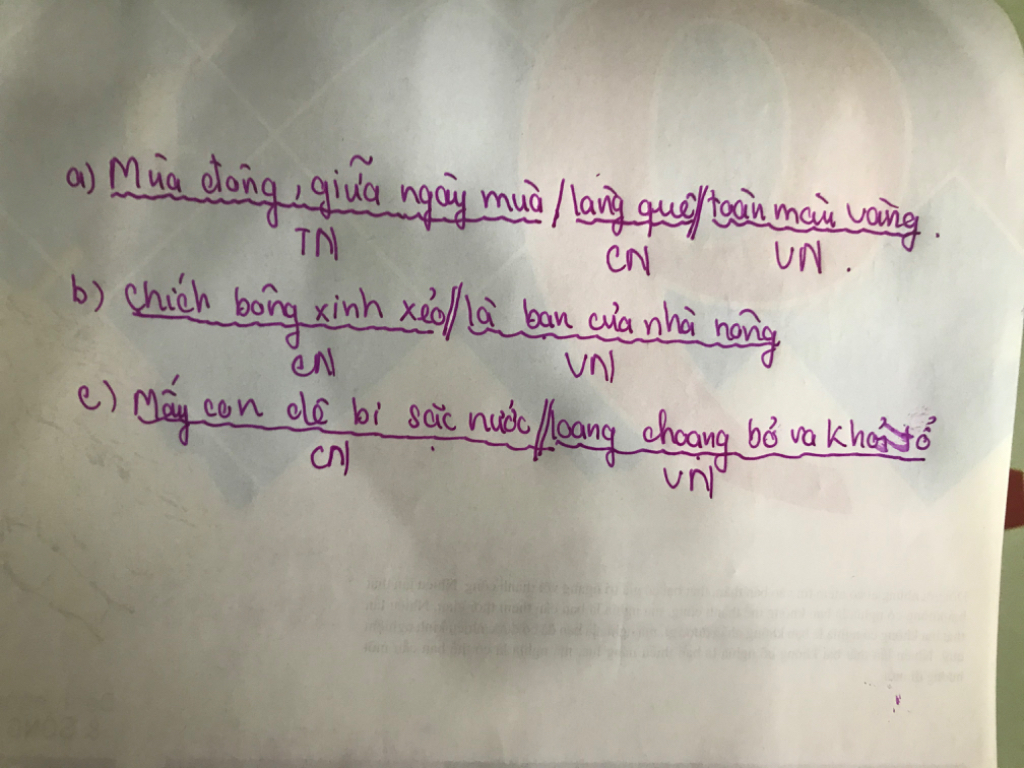 a) Mùa đông, giữa ngày mùa / làng quê // toàn màu vàng.
TN CN VN.
b) Chích bông xinh xẻo // là bạn của nhà nông
CN VN
c) Mấy con dế bị sặc nước // loạng choạng bò ra khỏi tổ
CN VN